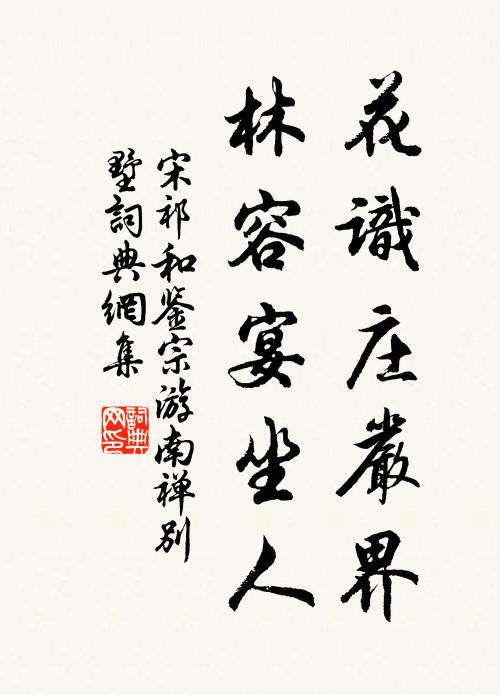 花識庄嚴界
林容宴坐人
宋祁和鉴宗游南禅别
墅詞典網集
詞典網印